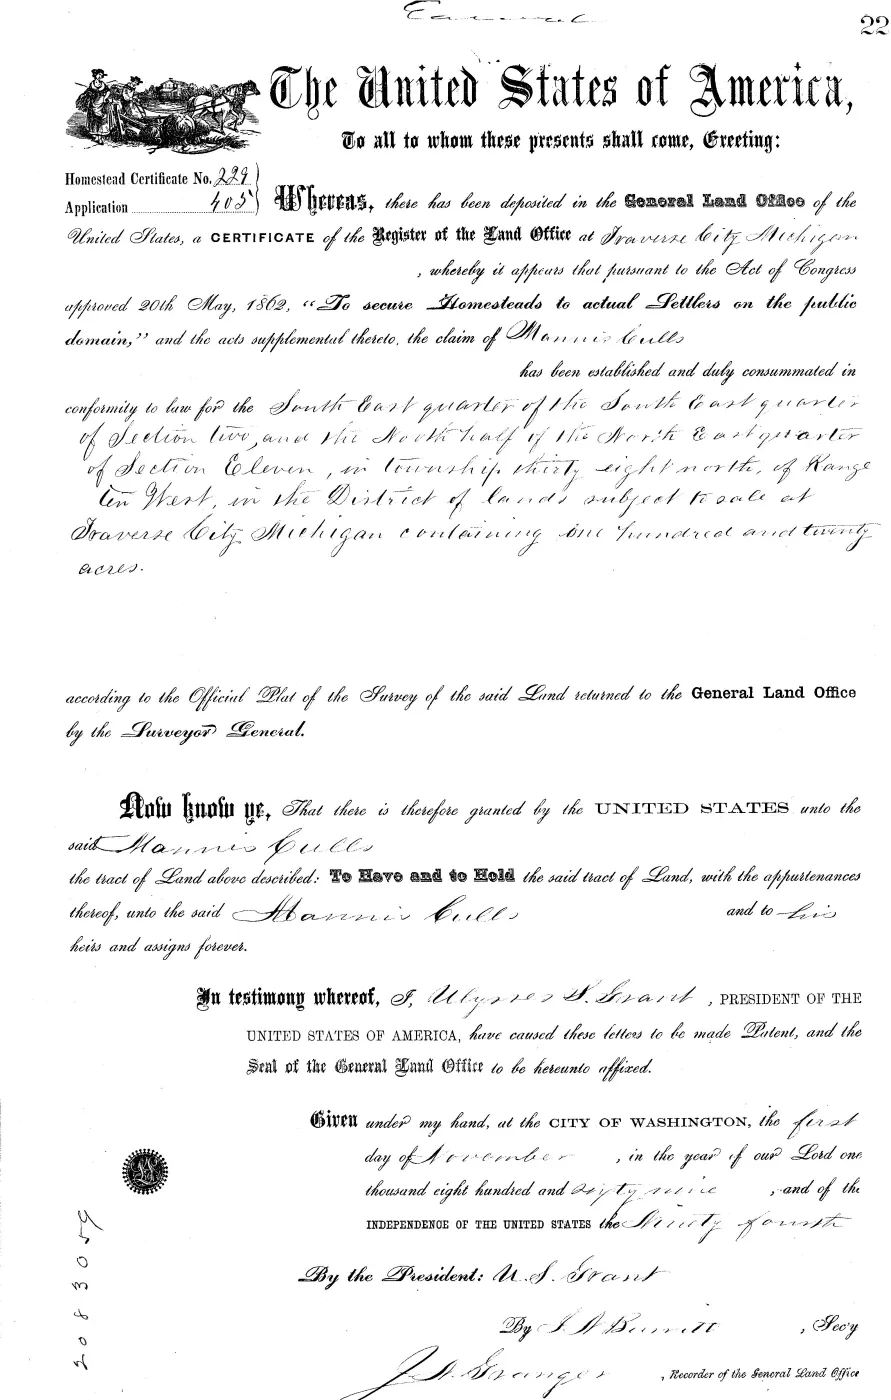 22
The United States of America,
To all to whom these presents shall come, Greeting:
Homestead Certificate No. 229
Application 405
Whereas, there has been deposited in the General Land Office of the
United States, a CERTIFICATE of the Register of the Land Office at Traverse City Michigan
, whereby it appears that pursuant to the Act of Congress
approved 20th May, 1862, "To secure Homesteads to actual Settlers on the public
domain," and the acts supplemental thereto, the claim of Mannis Culls
has been established and duly consummated in
conformity to law for the South East quarter of the South East quarter
of Section two, and the North half of the North East quarter
of Section Eleven, in township thirty eight north, of Range
ten West, in the District of lands subject to sale at
Traverse City Michigan containing one hundred and twenty
acres.
according to the Official Plat of the Survey of the said Land returned to the General Land Office
by the Surveyor General.
Now know ye, That there is therefore granted by the UNITED STATES unto the
said Mannis Culls
the tract of Land above described: To Have and to Hold the said tract of Land, with the appurtenances
thereof, unto the said Mannis Culls and to his
heirs and assigns forever.
In testimony whereof, I, Ulysses S. Grant, PRESIDENT OF THE
UNITED STATES OF AMERICA, have caused these letters to be made Patent, and the
Seal of the General Land Office to be hereunto affixed.
Given under my hand, at the CITY OF WASHINGTON, the first
day of November, in the year of our Lord one
thousand eight hundred and sixty nine, and of the
INDEPENDENCE OF THE UNITED STATES the Ninety fourth
By the President: U. S. Grant
By , Sec'y
, Recorder of the General Land Office
2083059